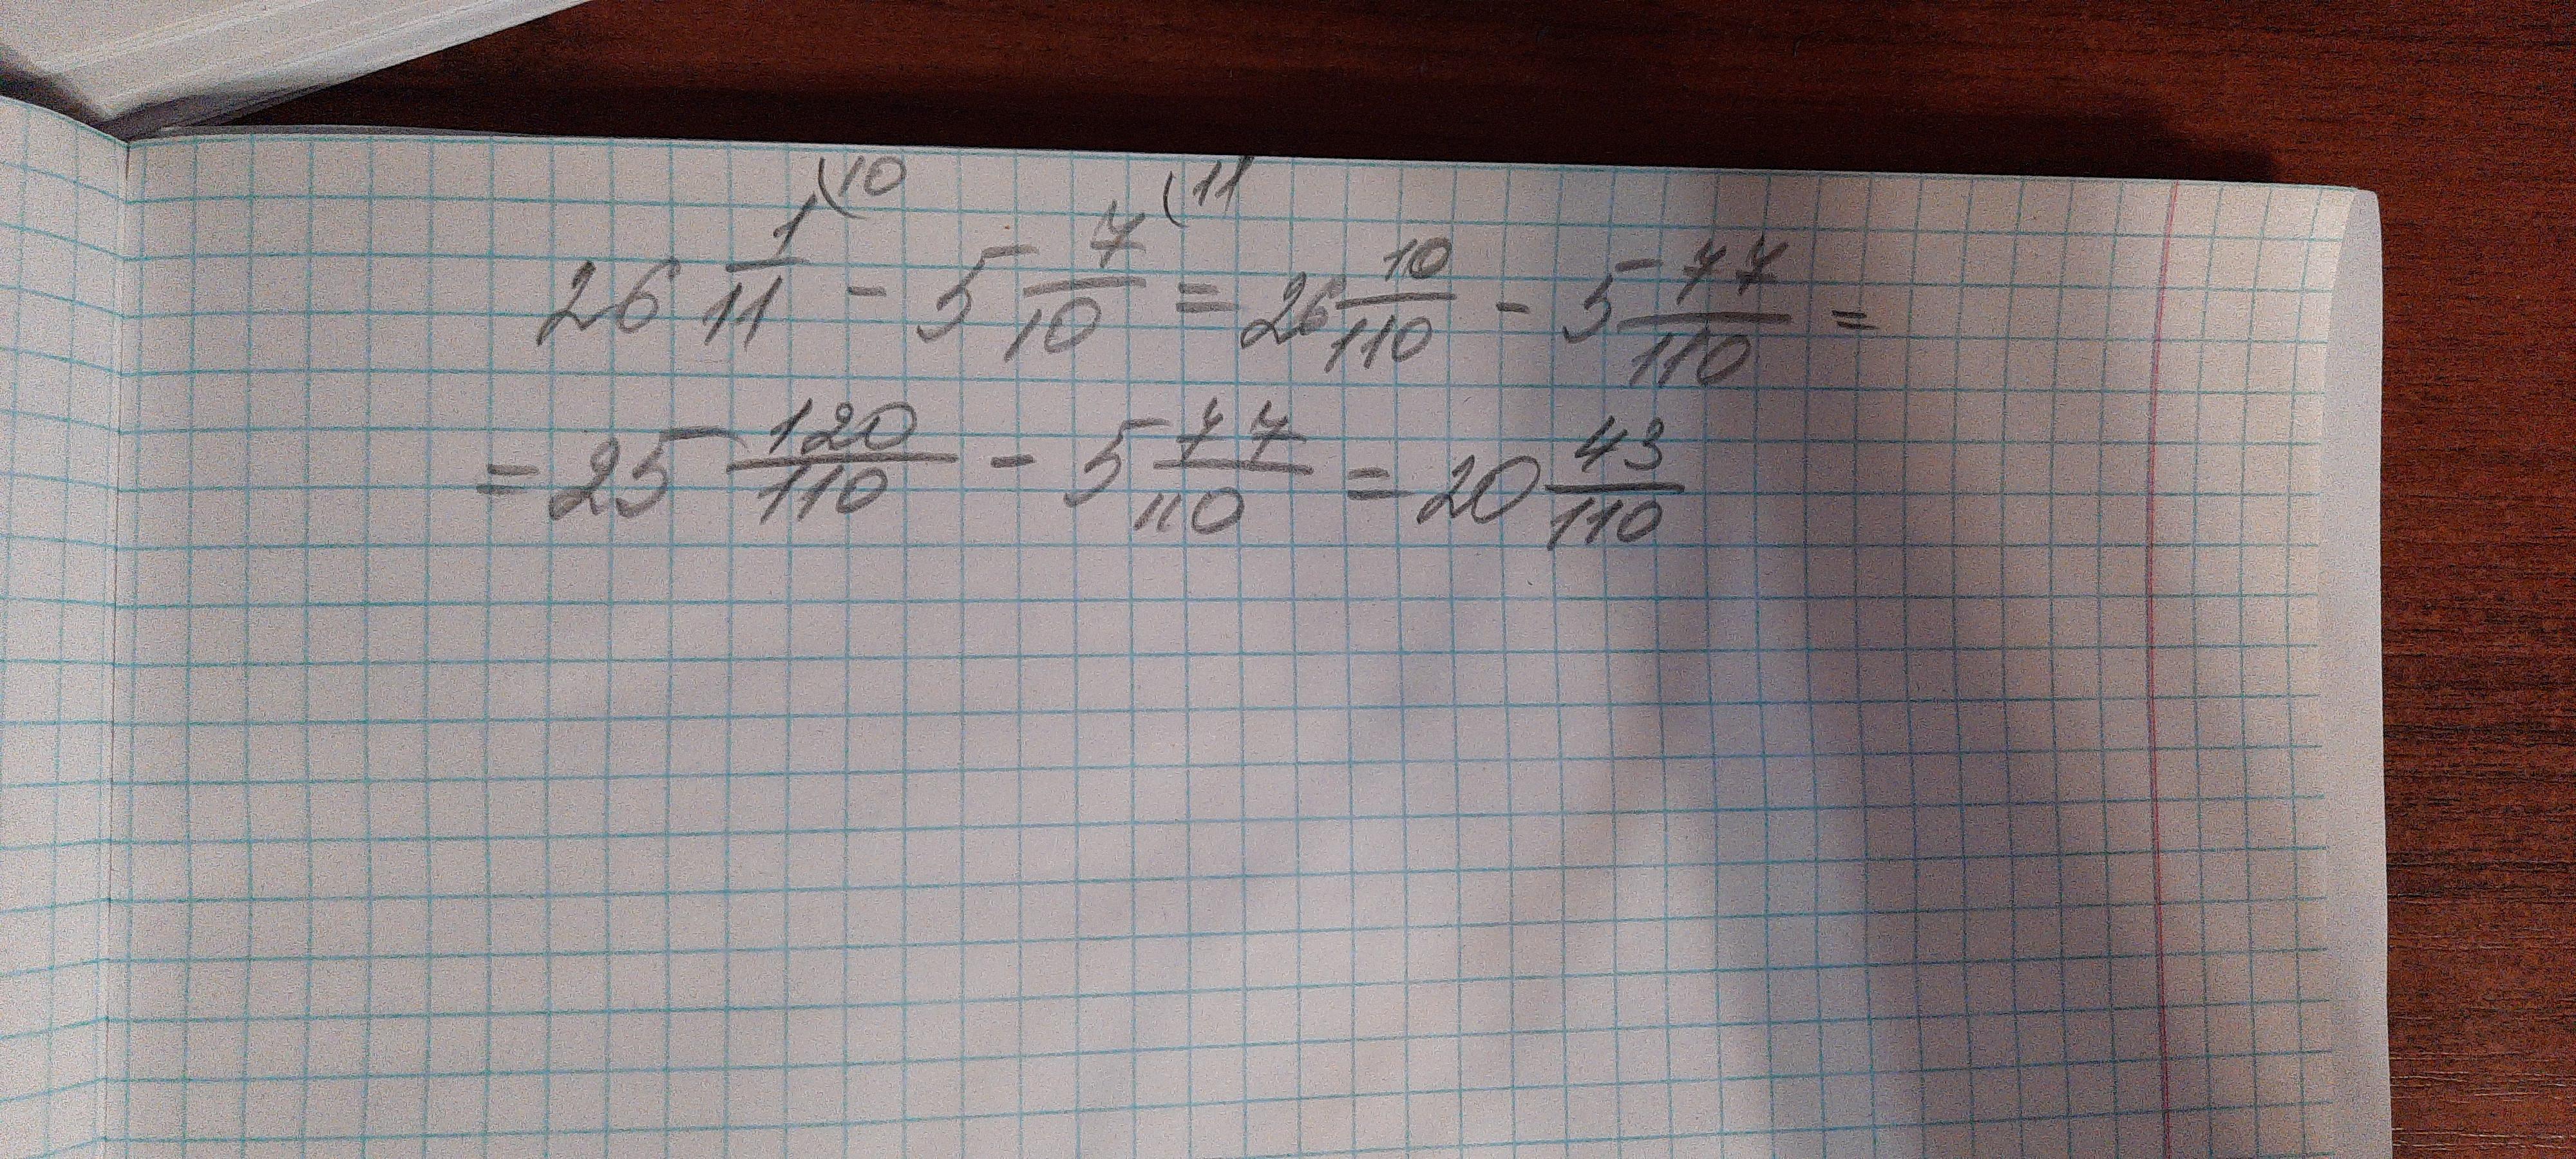 26 1/11 (10 - 5 7/10 (11 = 26 10/110 - 5 77/110 =
= 25 120/110 - 5 77/110 = 20 43/110